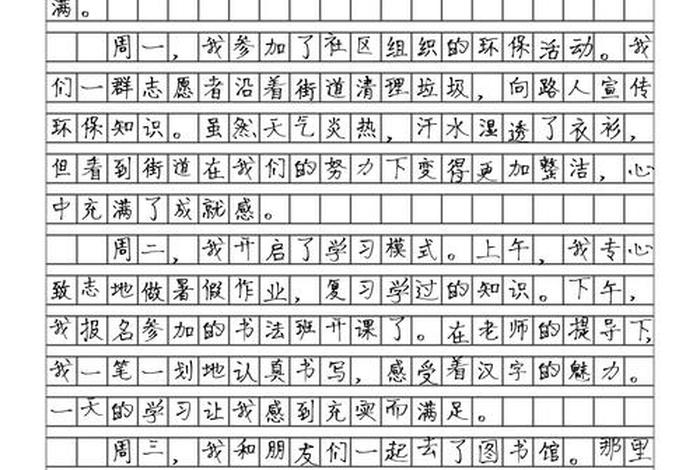 满。
周一，我参加了社区组织的环保活动。我
们一群志愿者沿着街道清理垃圾，向路人宣传
环保知识。虽然天气炎热，汗水湿透了衣衫，
但看到街道在我们的努力下变得更加整洁，心
中充满了成就感。
周二，我开启了学习模式。上午，我专心
致志地做暑假作业，复习学过的知识。下午，
我报名参加的书法班开课了。在老师的指导下，
我一笔一划地认真书写，感受着汉字的魅力。
一天的学习让我感到充实而满足。
周三，我和朋友们一起去了图书馆。那里